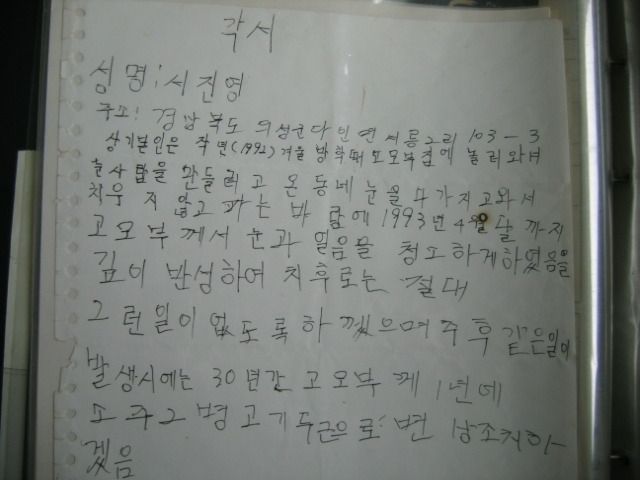 각서
성명:서진영
주소: 경상북도 의성군 다인면 서릉2리 103-3
상기본인은 작년(1992)겨울 방학때 고모부집에 놀러와서
눈사람을 만들려고 온동네 눈을 다 가지고와서
치우지 않고 가는 바람에 1993년 4월달까지
고모부께서 눈과 얼음을 청소하게하였음을
깊이 반성하여 차후로는 절대
그런일이 없도록 하겠으며 추후 같은일이
발생시에는 30년간 고모부께 1년에
소주2병 고기두근으로 변상조치하
겠음